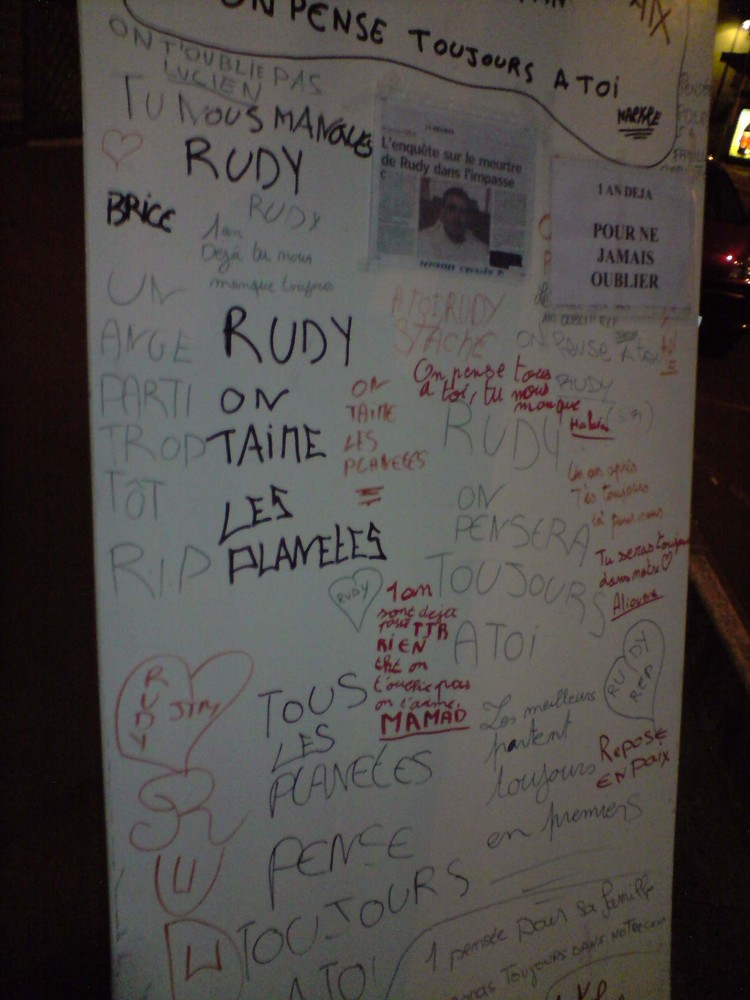 ON PENSE TOUJOURS A TOI
AIX
ON T'OUBLIE PAS
LUCIEN
TU NOUS MANQUES
RUDY
BRICE
RUDY
1 an
Deja tu nous
manque toujours
L'enquête sur le meurtre
de Rudy dans l'impasse
1 AN DEJA
POUR NE
JAMAIS
OUBLIER
UN
ANGE
PARTI
TROP
TÔT
RIP
RUDY
ON
TAIME
LES
PLANETES
A TOI RUDY
STACHE
ON PENSE A toi
RUDY
On pense tous
a toi, tu nous
manque
ON
TAIME
LES
PLANETES
RUDY
ON
PENSERA
TOUJOURS
A TOI
Un an après
T'es toujours
là pour nous
Tu seras toujours
dans notre
Alioune
RUDY
1 an
sont deja
passé TTR
RIEN
tkt on
t'oublie pas
on t'aime.
MAMAD
RUDY
JIM
TOUS
LES
PLANETES
PENSE
TOUJOURS
A TOI
RUDY
REP
Les meilleurs
partent
toujours
en premiers
REPOSE
EN PAIX
1 pensée pour sa famille
TOUJOURS DANS NOTRE